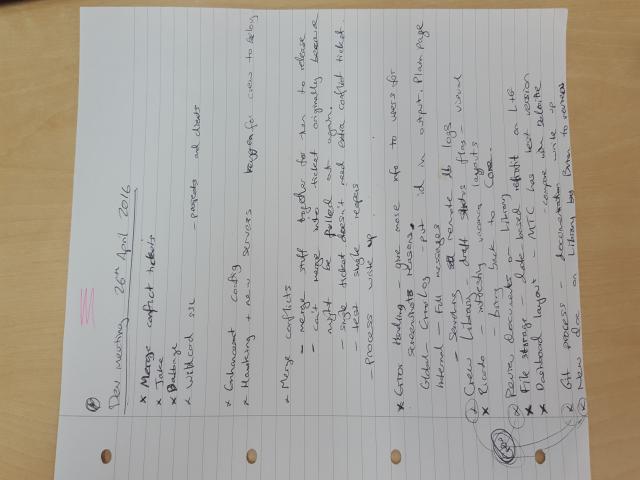 Dev meeting 26th April 2016
* Merge conflict tickets
* Jake
* Battinge
* Wildcard SSL - payments and clients
* Enhancement config
* Monitoring + new servers for crew to setup
* Merge conflicts
- merge stuff together for them to release
- can't merge into ticket originally because
might be pulled out again.
- single ticket doesn't need extra conflict ticket.
- test single
- Process write up
* Error Handling - give more info to users for
screenshots reasons.
Global - CrewLog - put id in output. Plain page
Internal - Full messages
- Sending remote db logs
Crew Library - draft status flag - visual
* - infecting various agents
- bring back to Core.
Review documents on Library
* File storage - date based retrofit on L+G
* Dashboard layout - MTC has best version
- compare with
Git process - documentation write up
New doc on Library by